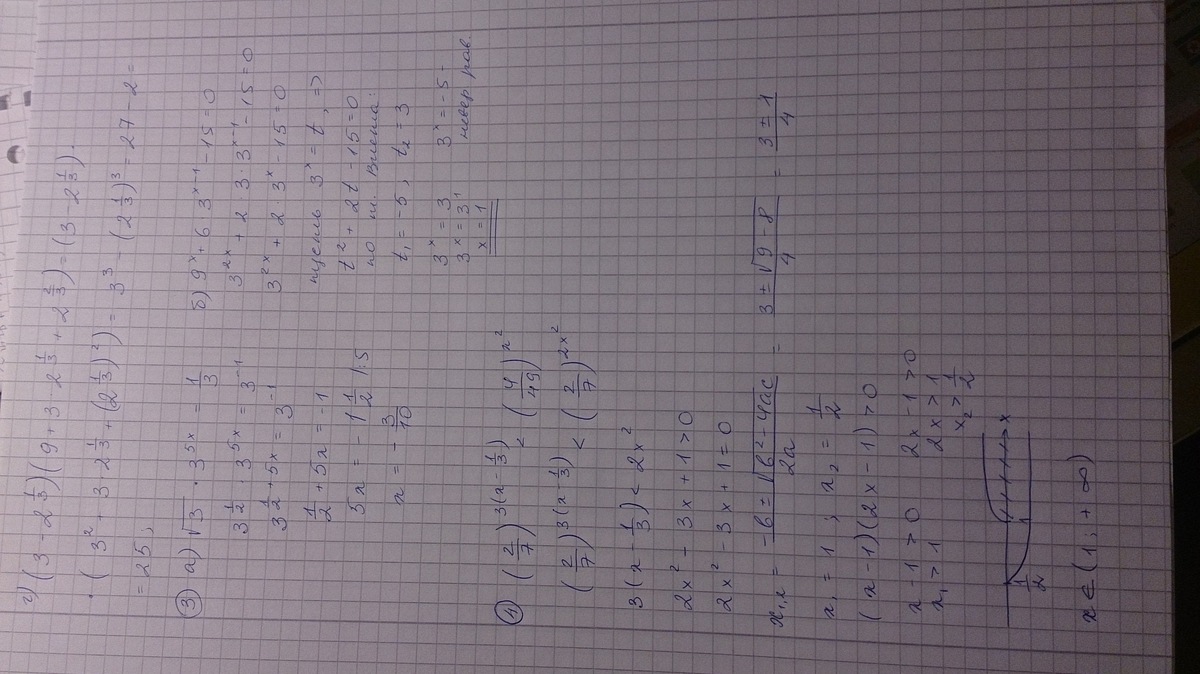 г) (3 - 2^(1/3))(9 + 3 · 2^(1/3) + 2^(2/3)) = (3 - 2^(1/3)) ·
· (3² + 3 · 2^(1/3) + (2^(1/3))²) = 3³ - (2^(1/3))³ = 27 - 2 =
= 25;
③ а) √3 · 3^(5x) = 1/3
3^(1/2) · 3^(5x) = 3^(-1)
3^(1/2 + 5x) = 3^(-1)
1/2 + 5x = -1
5x = -1 1/2 |:5
x = -3/10
б) 9^x + 6 · 3^(x-1) - 15 = 0
3^(2x) + 2 · 3 · 3^(x-1) - 15 = 0
3^(2x) + 2 · 3^x - 15 = 0
пусть 3^x = t, =>
t² + 2t - 15 = 0
по т. Виета:
t₁ = -5, t₂ = 3
3^x = 3 3^x = -5 -
3^x = 3¹ невер рав.
x = 1
④ (2/7)^(3(x - 1/3)) < (4/49)^(x²)
(2/7)^(3(x - 1/3)) < (2/7)^(2x²)
3(x - 1/3) < 2x²
2x² - 3x + 1 > 0
2x² - 3x + 1 = 0
x₁,₂ = (-b ± √(b² - 4ac))/2a = (3 ± √(9 - 8))/4 = (3 ± 1)/4
x₁ = 1; x₂ = 1/2
(x - 1)(2x - 1) > 0
x - 1 > 0 2x - 1 > 0
x₁ > 1 2x > 1
x₂ > 1/2
1/2 1 x
x ∈ (1; +∞)